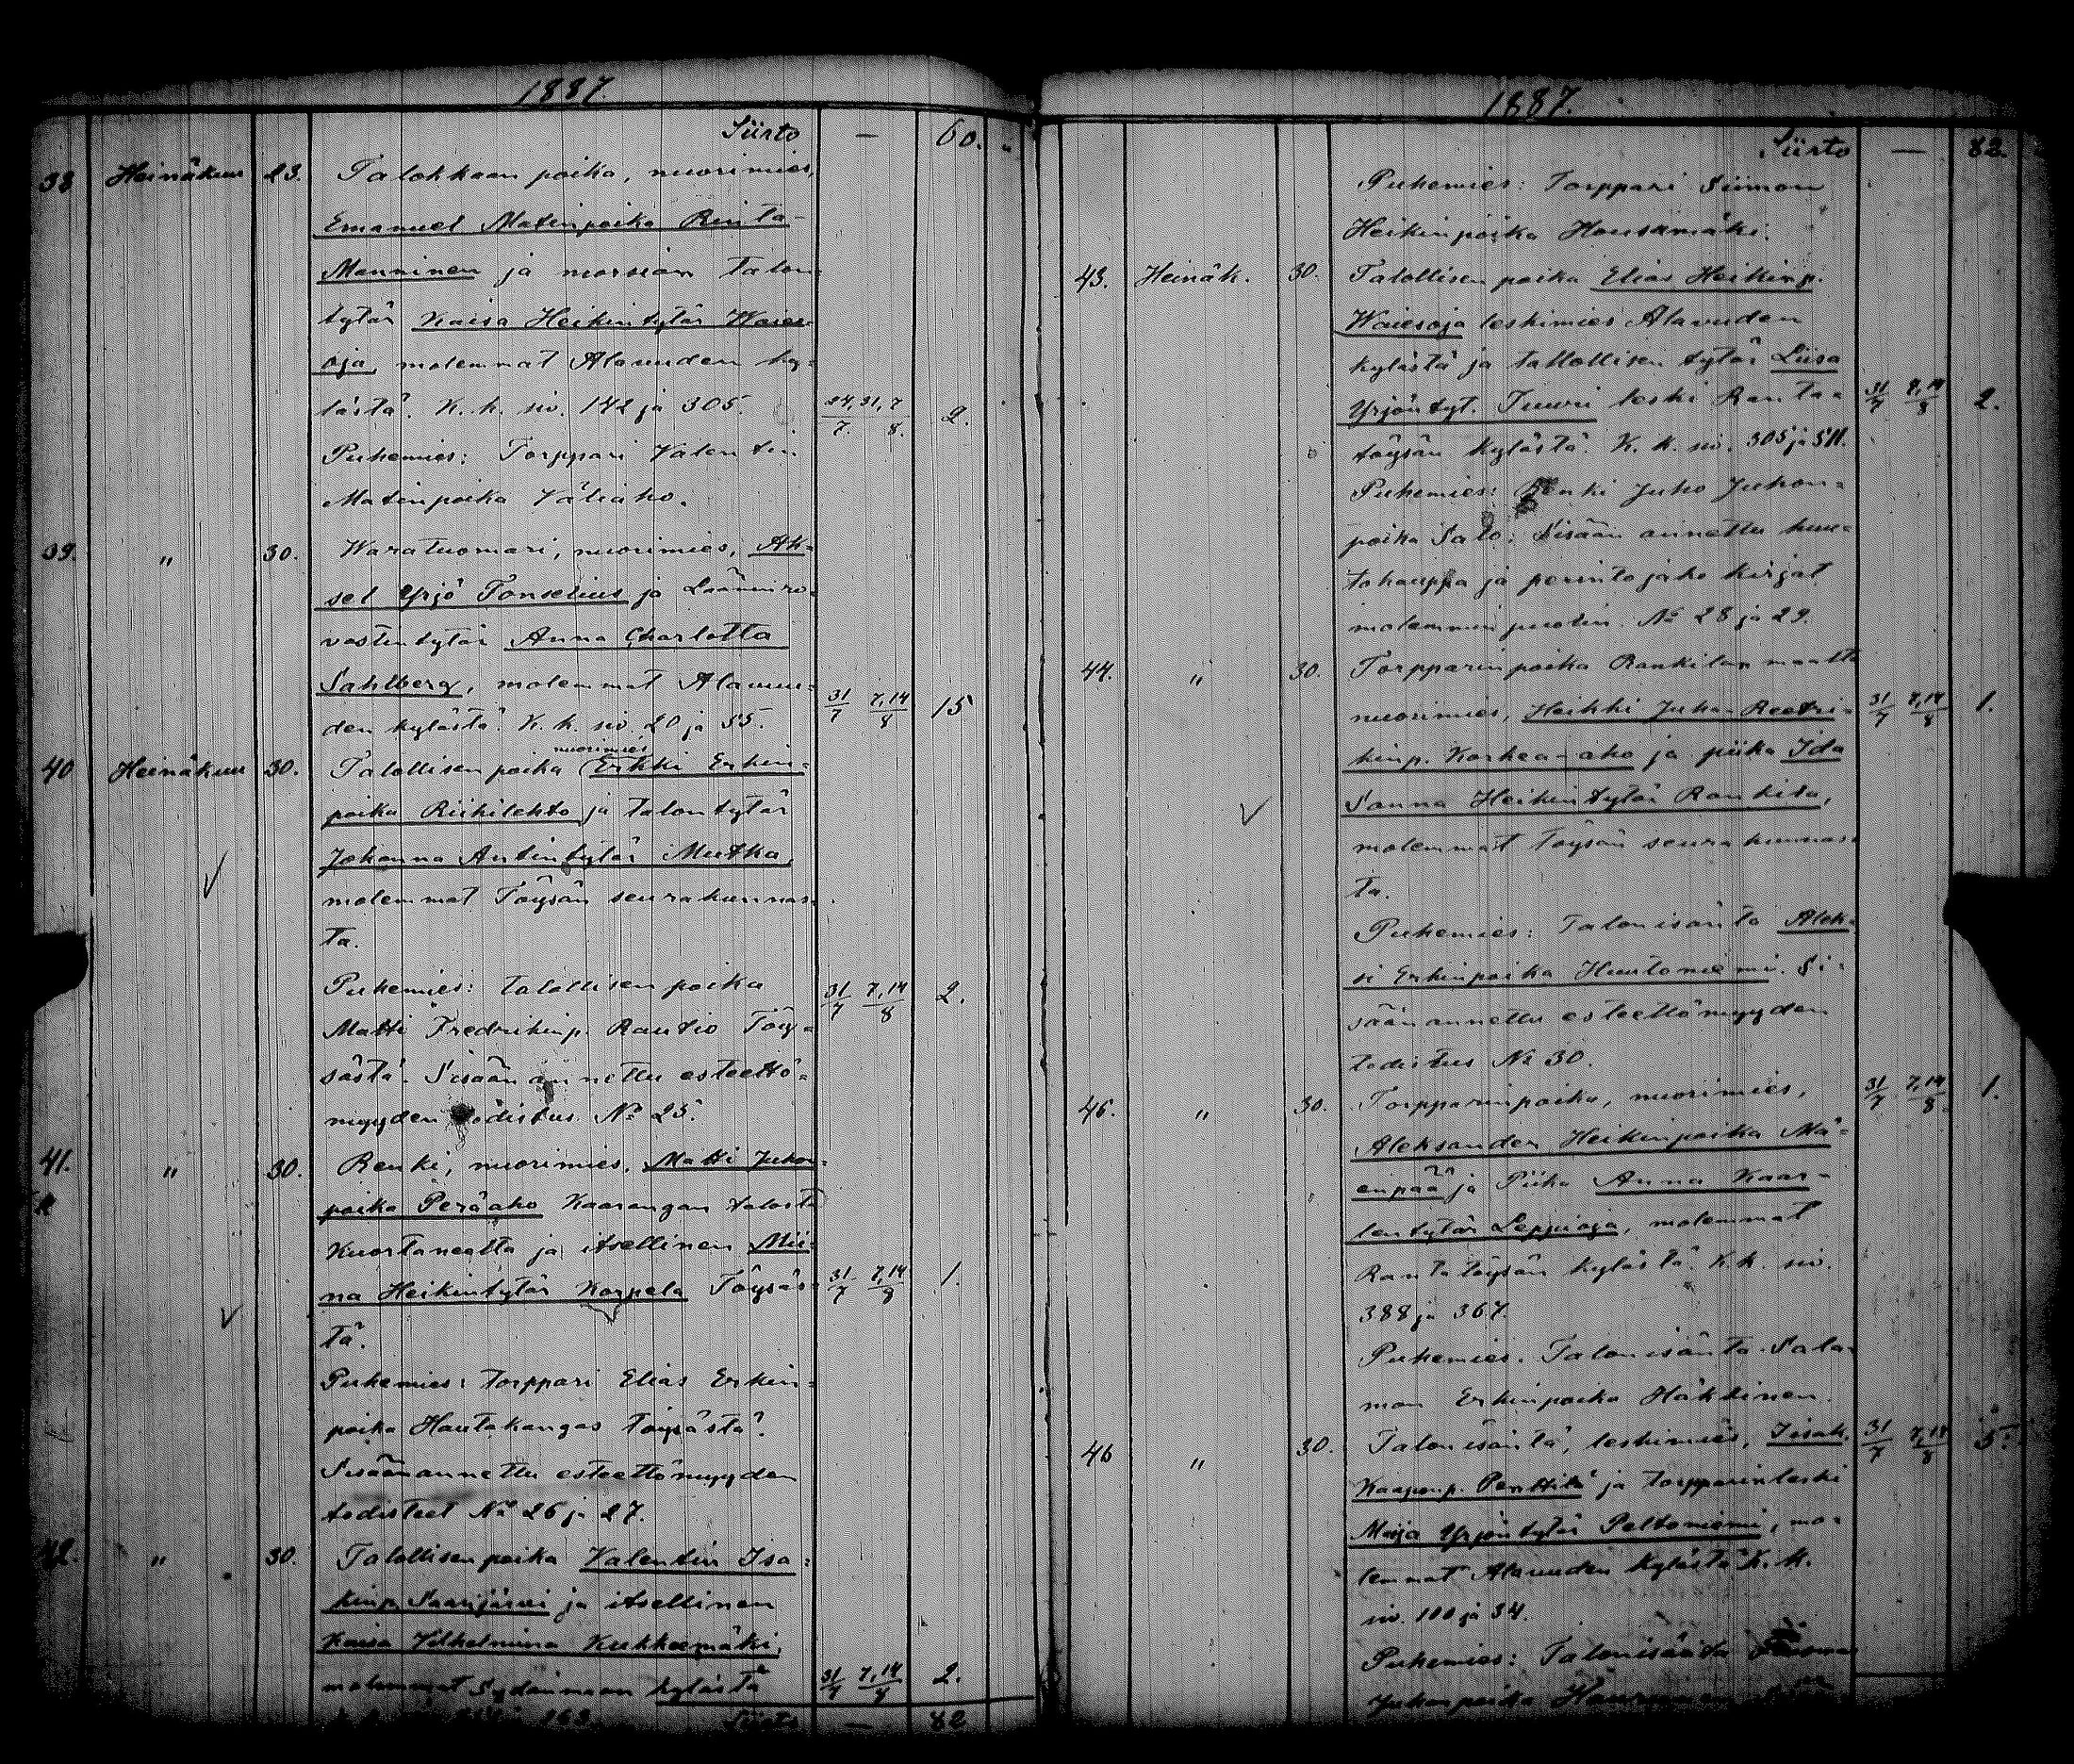 1887.
Siirto — 60. "
38 Heinäkuu 23. Talokkaan poika, nuorimies,
Emanuel Matinpoika Rinta-
Manninen ja morsian talon
tytär Kaisa Heikintytär
oja, molemmat Alavuden ky-
lästä. K. k. siv. 142 ja 305. 24,31,7 / 7. 8. 2.
Puhemies: Torppari Valentin
Matinpoika Väliaho.
39. " 30. Waratuomari, nuorimies, Ak-
sel Yrjö Fonselius ja Lääninro-
vastintytär Anna Charlotta
Sahlberg, molemmat Alavuu-
den kylästä. K. k. siv. 20 ja 55. 31/7 7,14/8 15
nuorimies
40 Heinäkuu 30. Talollisen poika Erkki Erkin-
poika Riihilehto ja talontytär
Johanna Antintytär Mutka,
molemmat Töysän seurakunnas-
ta.
Puhemies: talollisen poika 31/7 7,14/8 2.
Matti Fredrikinp. Rautio Töy-
sästä. Sisään annettu esteettö-
myyden todistus No 25.
41. " 30. Renki, nuorimies, Matti Juhon-
poika Peräaho Kaarangan talosta
Kuortaneelta ja itsellinen Mii-
na Heikintytär Korpela Töysäs- 31/7 7,14/8 1.
tä.
Puhemies: torppari Elias Erkin-
poika Hautakangas töysästä.
Sisäänannettu esteettömyyden
todisteet No 26 ja 27.
42. " 30. Talollisen poika Valentin Isa-
kinp. Saarijärvi ja itsellinen
Kaisa Vilhelmina Kukkamäki,
molemmat Sydänmaan kylästä 31/7 7,14/8 2.
163. Siirto — 82
1887.
Siirto — 82.
Puhemies: Torppari Siimon
Heikinpoika Houskamäki.
43. Heinäk. 30. Talollisen poika Elias Heikinp.
Waiesoja leskimies Alavuden
kylästä ja tallollisen tytär Liisa
Yrjöntyt. Tuuri leski Ranta- 31/7 7,14/8 2.
töysän kylästä. K. k. siv. 305 ja 511.
Puhemies: Renki Juho Juhon-
poika Salo. Sisään annettu huu-
tokauppa ja perintojako kirjat
molemmin puolin. No 28 ja 29.
44. " 30. Torpparinpoika Rankilan maalta
nuorimies, Heikki Juha Reetri- 31/7 7,14/8 1.
kinp. Korkea-aho ja piika Ida
Sanna Heikintytär Rankila,
molemmat töysän seurakunnas-
ta.
Puhemies: Talonisänta Alek-
si Erkinpoika Huutoniemi. Si-
säänannettu esteettömyyden
todistus No 30.
45. " 30. Torpparinpoika, nuorimies, 31/7 7,14/8. 1.
Aleksander Heikinpoika Mä-
enpää ja Piika Anna Kaar-
lentytär Leppioja, molemmat
Rantatöysän kylästä. K.k. siv.
388 ja 367.
Puhemies. Talonisänta Salo-
mon Erkinpoika Häkkinen.
46 " 30. Talonisäntä, leskimies, Iisak 31/7 7,14/8 5.
Kaaponp. Penttilä ja torpparinleski
Maija Yrjöntytär Peltoniemi, mo-
lemmat Alavuden kylästä K. k.
siv. 100 ja 34.
Puhemies: Talonisäntä
Juhonpoika